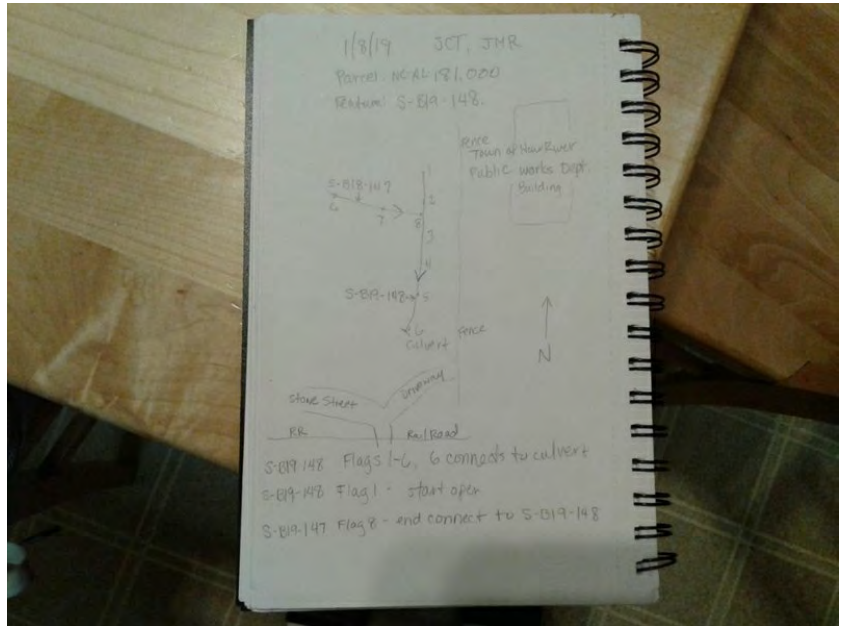 1/8/19 JCT, JMR
Parcel: NC-AL 181.000
Feature: S-B19-148.
Fence
Town of Haw River
Public works Dept.
Building
S-B18-147
6
7
8
1
2
3
4
S-B19-148
5
6
Culvert
Fence
N
Stone Street
Driveway
RR
RailRoad
S-B19-148 Flags 1-6, 6 connects to culvert
S-B19-148 Flag 1 - start open
S-B19-147 Flag 8 - end connect to S-B19-148